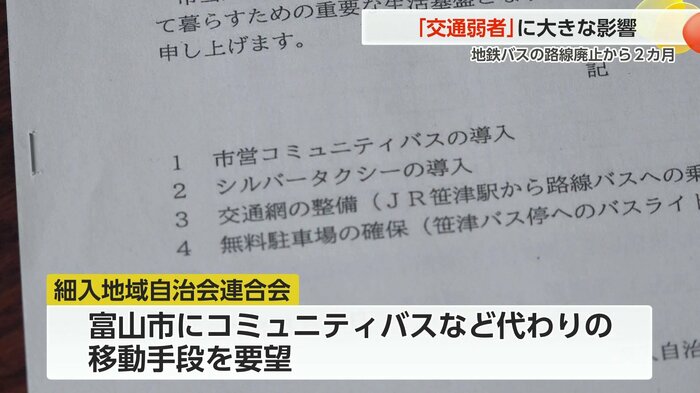 「交通弱者」に大きな影響
地鉄バスの路線廃止から2カ月
て暮らすための重要な生活基盤
申し上げます。
記
1 市営コミュニティバスの導入
2 シルバータクシーの導入
3 交通網の整備(JR笹津駅から路線バスへの乗
4 無料駐車場の確保(笹津バス停へのバスライト
細入地域自治会連合会
富山市にコミュニティバスなど代わりの
移動手段を要望
自治